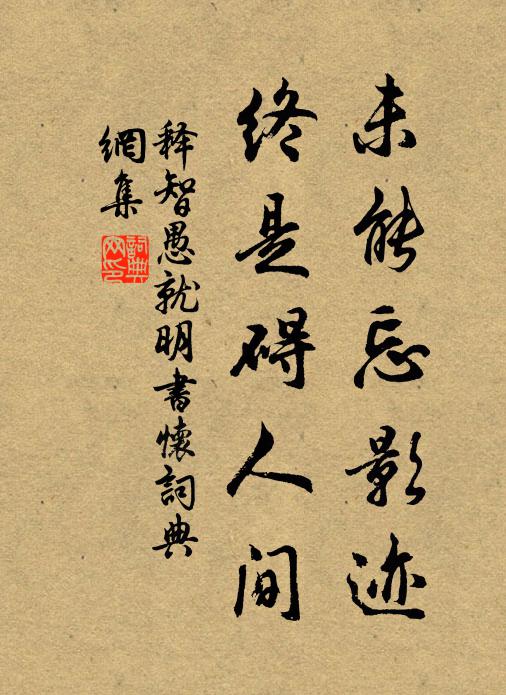 未能忘影迹
终是碍人间
释智愚就明书懷詞典
網集
詞典网印